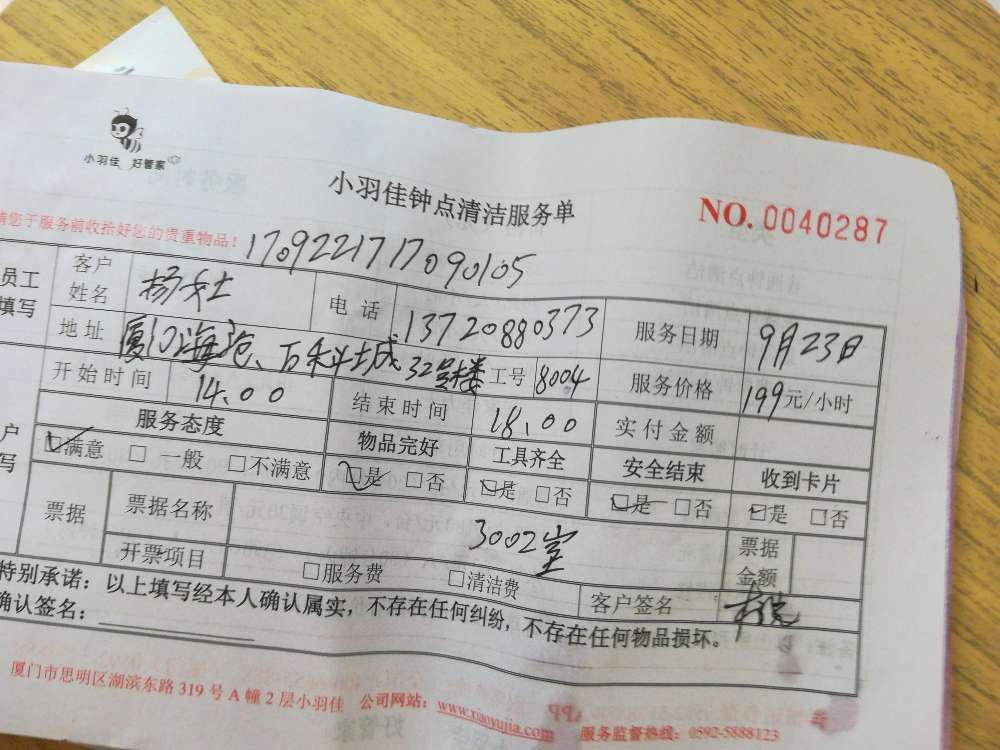 小羽佳 好管家
小羽佳钟点清洁服务单
NO.0040287
请您于服务前收拾好您的贵重物品！
1709221717090105
员工填写
客户姓名 杨女士 电话 13720880373 服务日期 9月23日
地址 厦门海沧、万科城32号楼 工号 8004 服务价格 199元/小时
开始时间 14.00 结束时间 18.00 实付金额
服务态度 物品完好 工具齐全 安全结束 收到卡片
户
写
☑满意 □一般 □不满意 ☑是 □否 ☑是 □否 ☑是 □否 ☑是 □否
票据 票据名称 3002室 票据金额
开票项目 □服务费 □清洁费 客户签名
特别承诺：以上填写经本人确认属实，不存在任何纠纷，不存在任何物品损坏。
确认签名：
厦门市思明区湖滨东路319号A幢2层小羽佳 公司网站：www.xiaoyujia.com 服务监督热线：0592-5888123